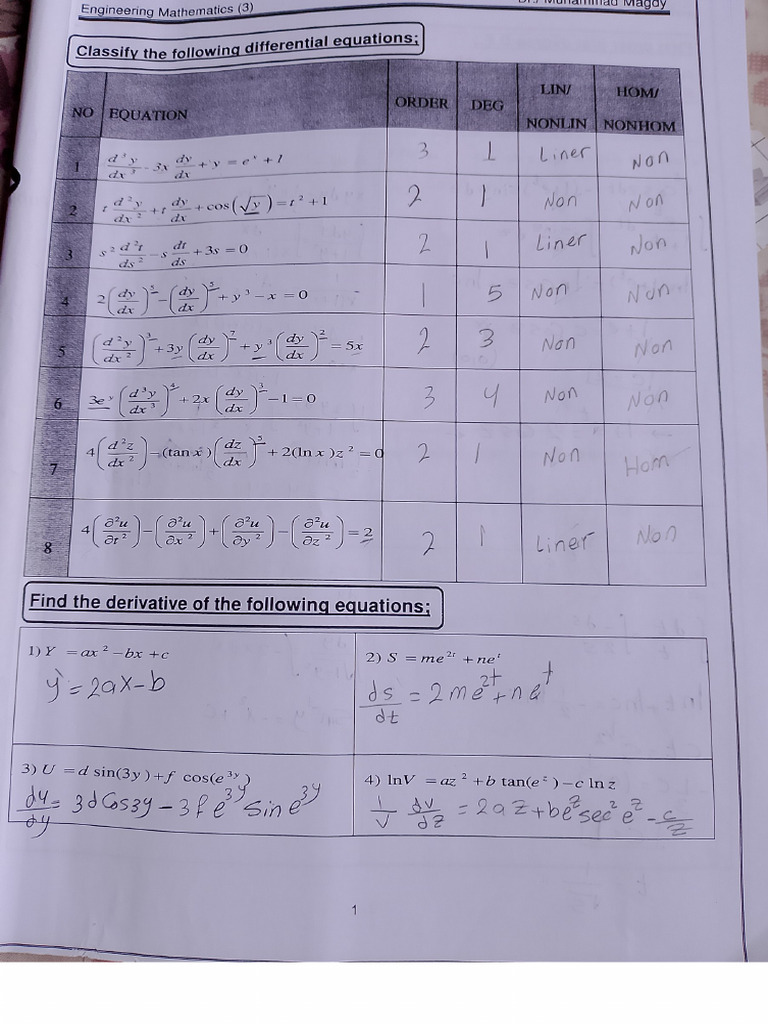 Engineering Mathematics (3) Dr./ Muhammad Magdy
Classify the following differential equations;
NO EQUATION ORDER DEG LIN/ NONLIN HOM/ NONHOM
1 d³y/dx³ - 3x dy/dx + y = eˣ + 1 3 1 Liner Non
2 t d²y/dx² + t dy/dx + cos(√y) = t² + 1 2 1 Non Non
3 s² d²t/ds² - s dt/ds + 3s = 0 2 1 Liner Non
4 2(dy/dx)⁵ - (dy/dx)⁵ + y³ - x = 0 1 5 Non Non
5 (d²y/dx²)³ + 3y(dy/dx)⁷ + y³(dy/dx)² = 5x 2 3 Non Non
6 3eʸ(d³y/dx³)⁴ + 2x(dy/dx)³ - 1 = 0 3 4 Non Non
7 4(d²z/dx²) - (tan x)(dz/dx)⁵ + 2(ln x)z² = 0 2 1 Non Hom
8 4(∂²u/∂t²) - (∂²u/∂x²) + (∂²u/∂y²) - (∂²u/∂z²) = 2 2 1 Liner Non
Find the derivative of the following equations;
1) Y = ax² - bx + c
y' = 2ax - b
2) S = me²ᵗ + neᵗ
ds/dt = 2me²ᵗ + neᵗ
3) U = d sin(3y) + f cos(e³ʸ)
dy/dy = 3d Cos3y - 3f e³ʸ sin e³ʸ
4) lnV = az² + b tan(eᶻ) - c ln z
1/V dV/dz = 2az + beᶻ sec² eᶻ - c/z
1